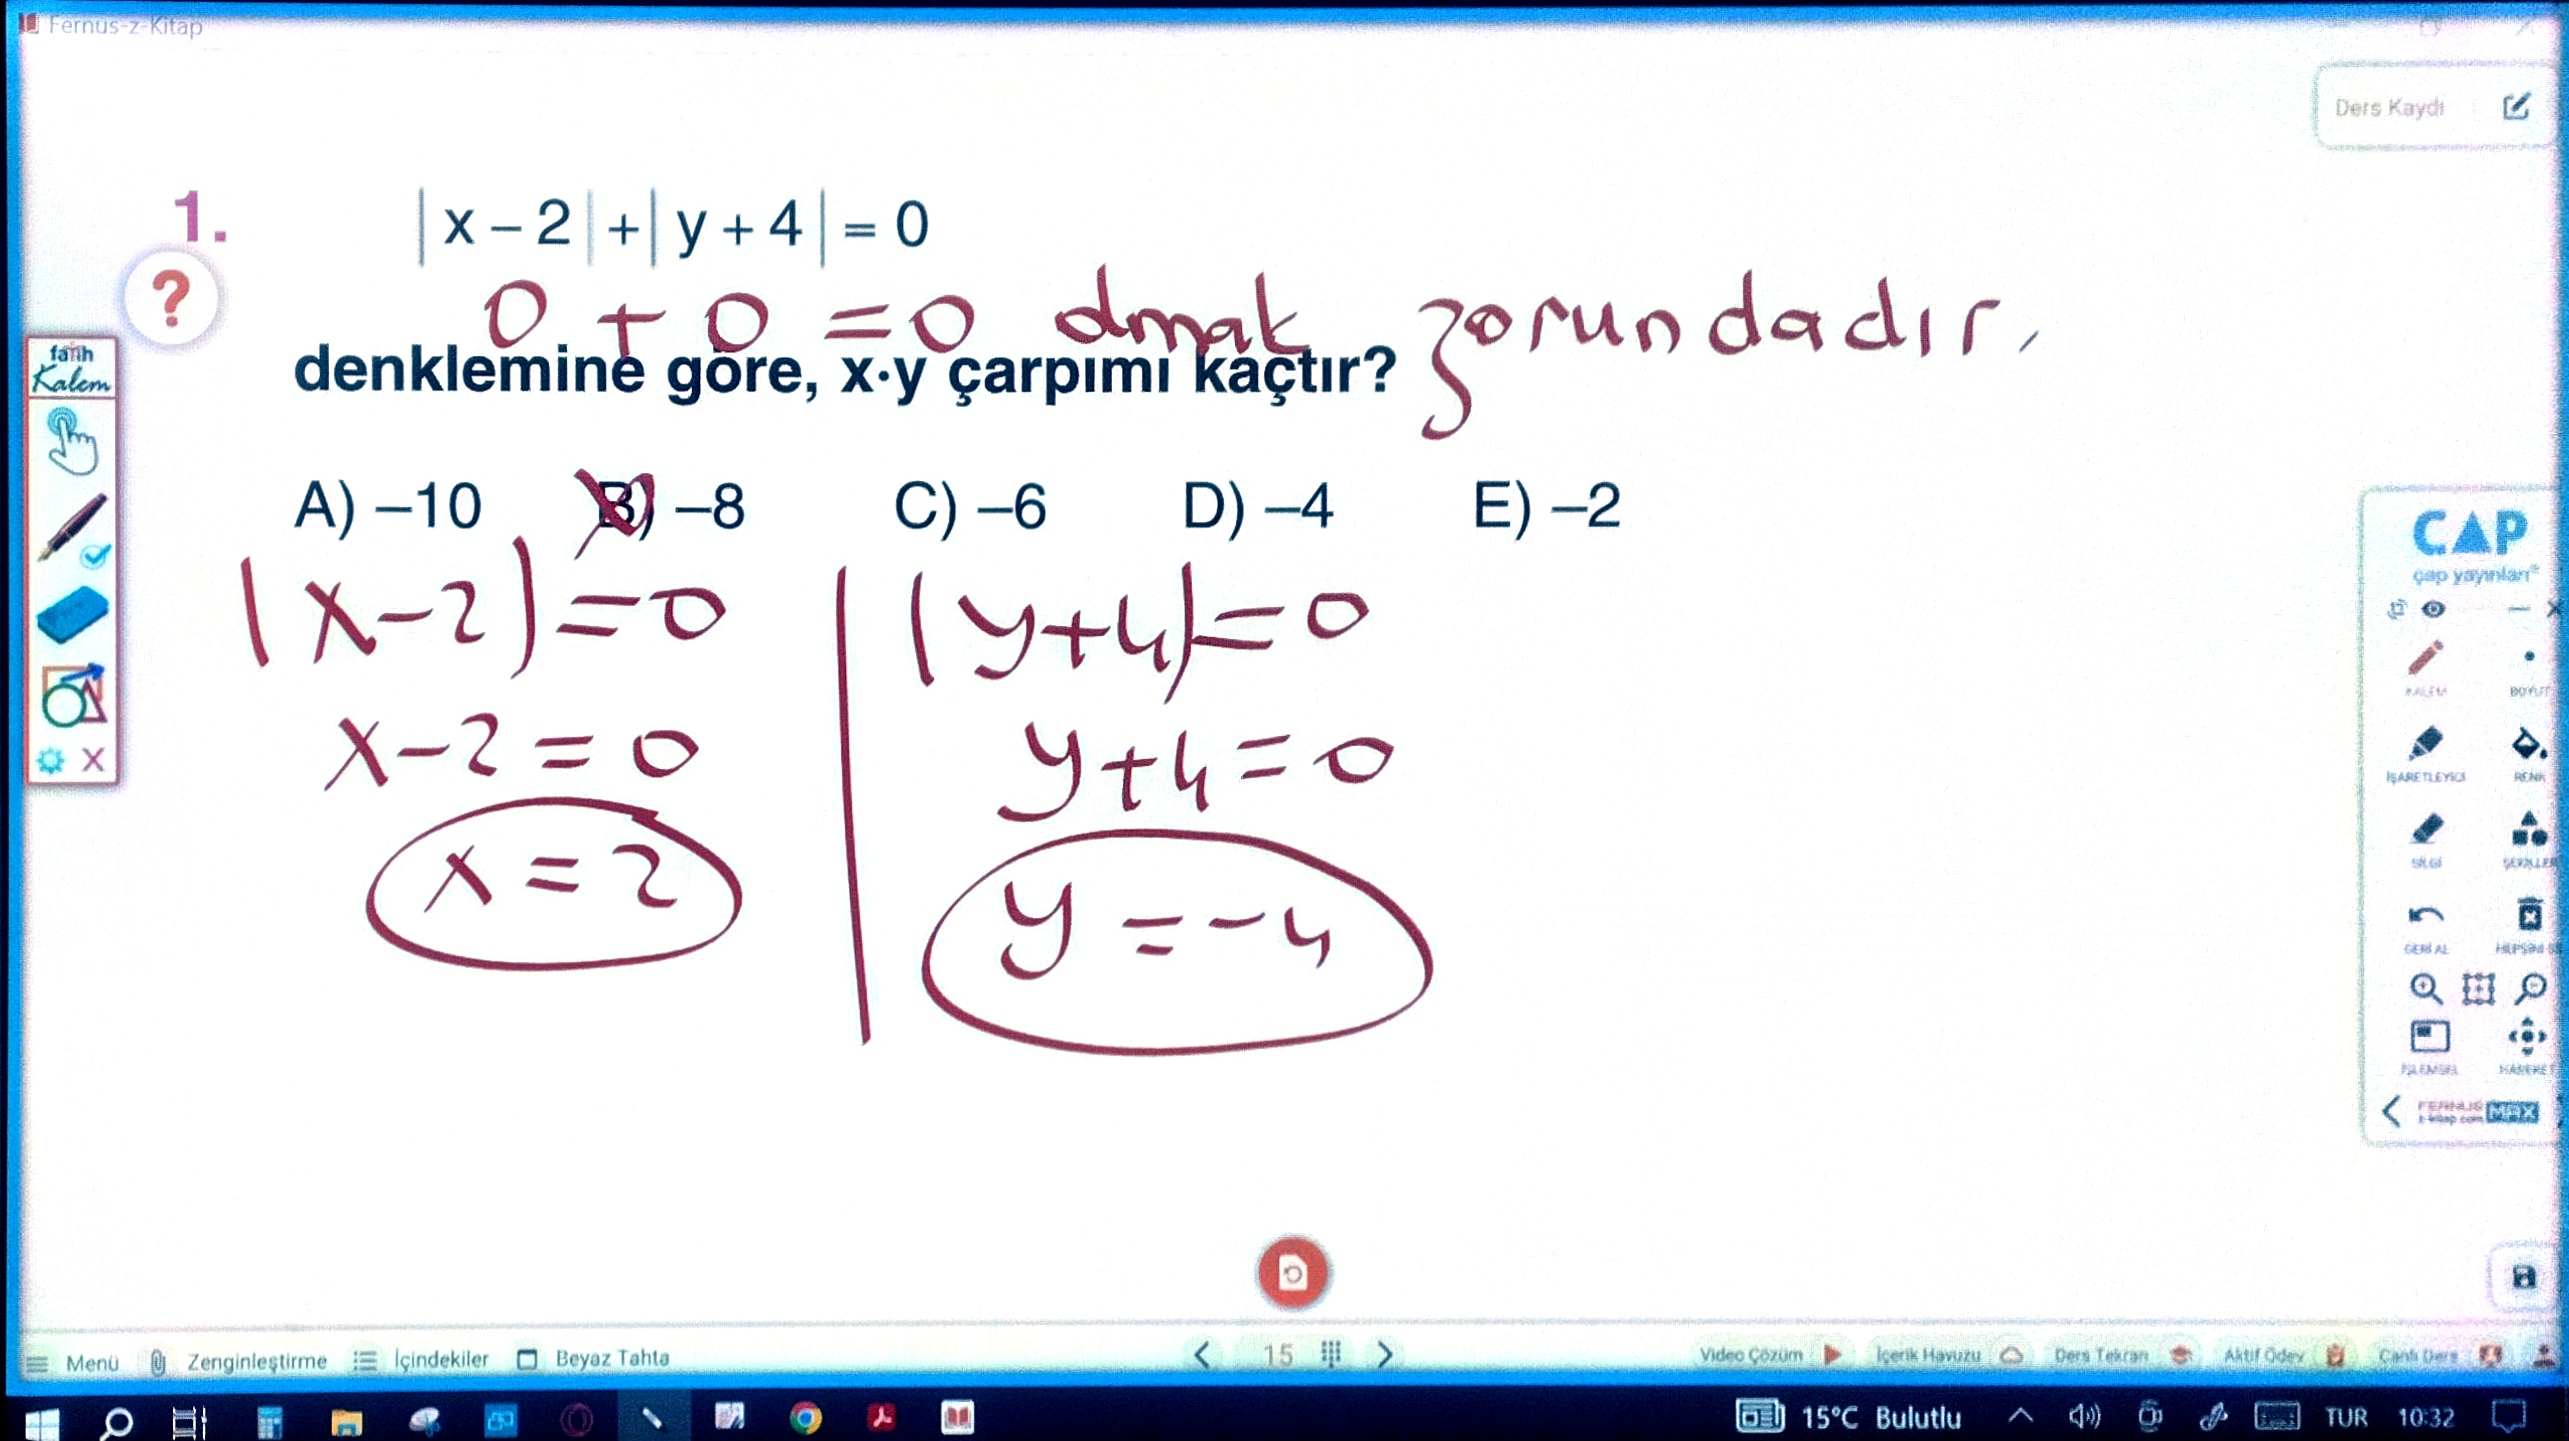 Fernus-z-Kitap
Ders Kaydı
1. |x – 2| + |y + 4| = 0
0 + 0 = 0 olmak zorundadır.
denklemine göre, x·y çarpımı kaçtır?
A) –10 B) –8 C) –6 D) –4 E) –2
|x-2|=0 |y+4|=0
x-2=0 y+4=0
x=2 y=-4
fatih
Kalem
ÇAP
çap yayınları
KALEM BOYUT
İŞARETLEYİCİ RENK
SİLGİ ŞEKİLLER
GERİ AL HEPSİNİ Sİ
İŞLEMSEL HAREKET
FERNUS MAX
z-kitap.com
Menü Zenginleştirme İçindekiler Beyaz Tahta 15 Video Çözüm İçerik Havuzu Ders Tekrarı Aktif Ödev Canlı Ders
15°C Bulutlu TUR 10:32